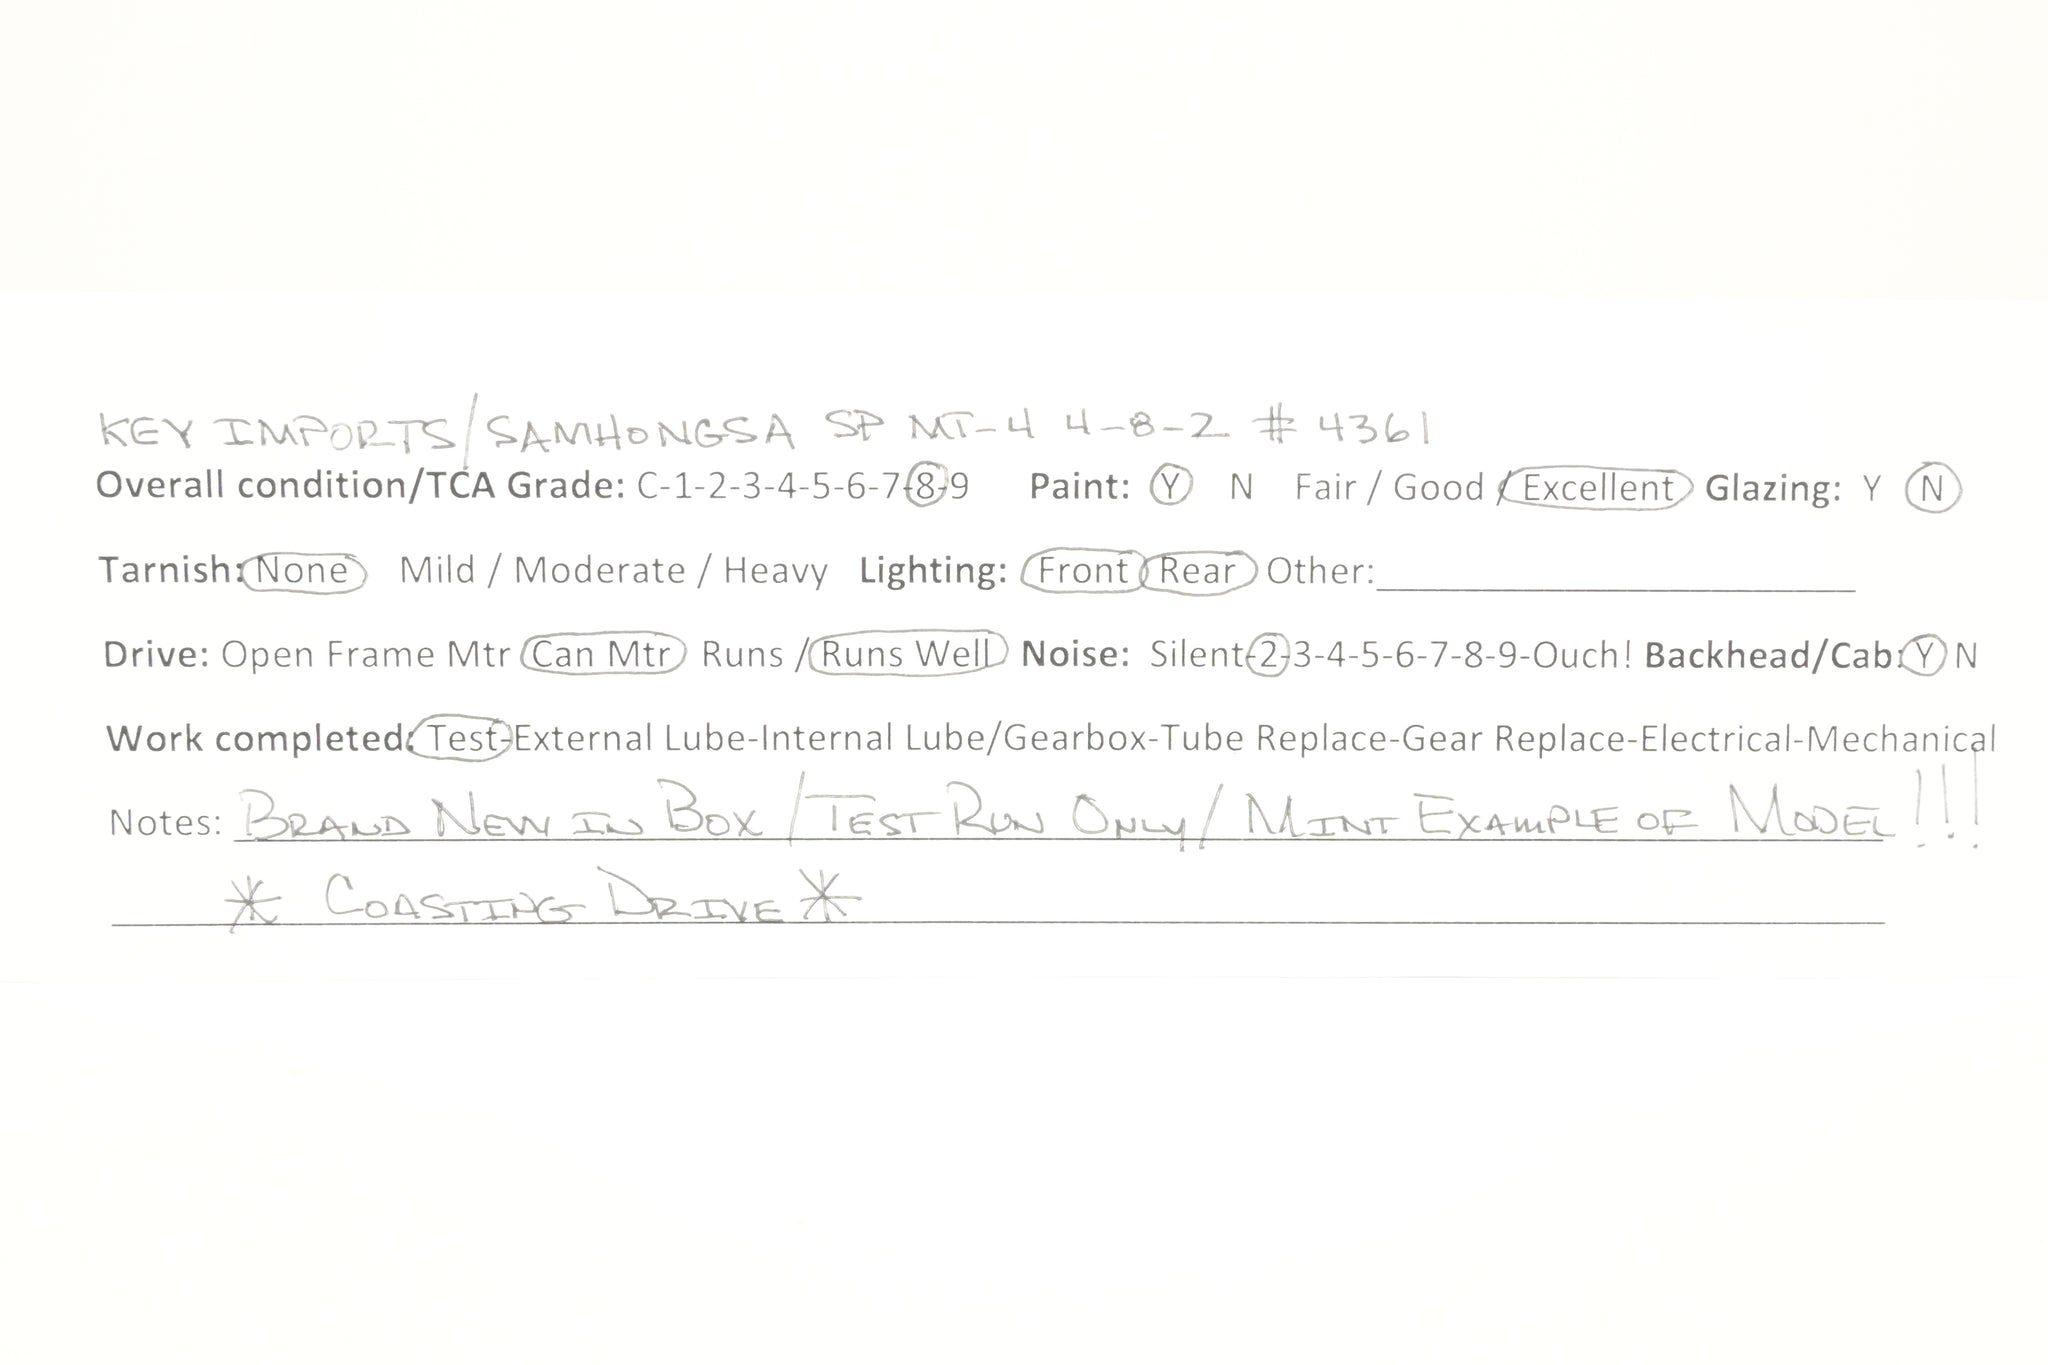 KEY IMPORTS/SAMHONGSA SP MT-4 4-8-2 # 4361
Overall condition/TCA Grade: C-1-2-3-4-5-6-7-8-9 Paint: Y N Fair / Good / Excellent Glazing: Y N
Tarnish: None Mild / Moderate / Heavy Lighting: Front Rear Other:
Drive: Open Frame Mtr Can Mtr Runs / Runs Well Noise: Silent-2-3-4-5-6-7-8-9-Ouch! Backhead/Cab: Y N
Work completed: Test-External Lube-Internal Lube/Gearbox-Tube Replace-Gear Replace-Electrical-Mechanical
Notes: BRAND NEW IN BOX / TEST RUN ONLY / MINT EXAMPLE OF MODEL!!!
* COASTING DRIVE *